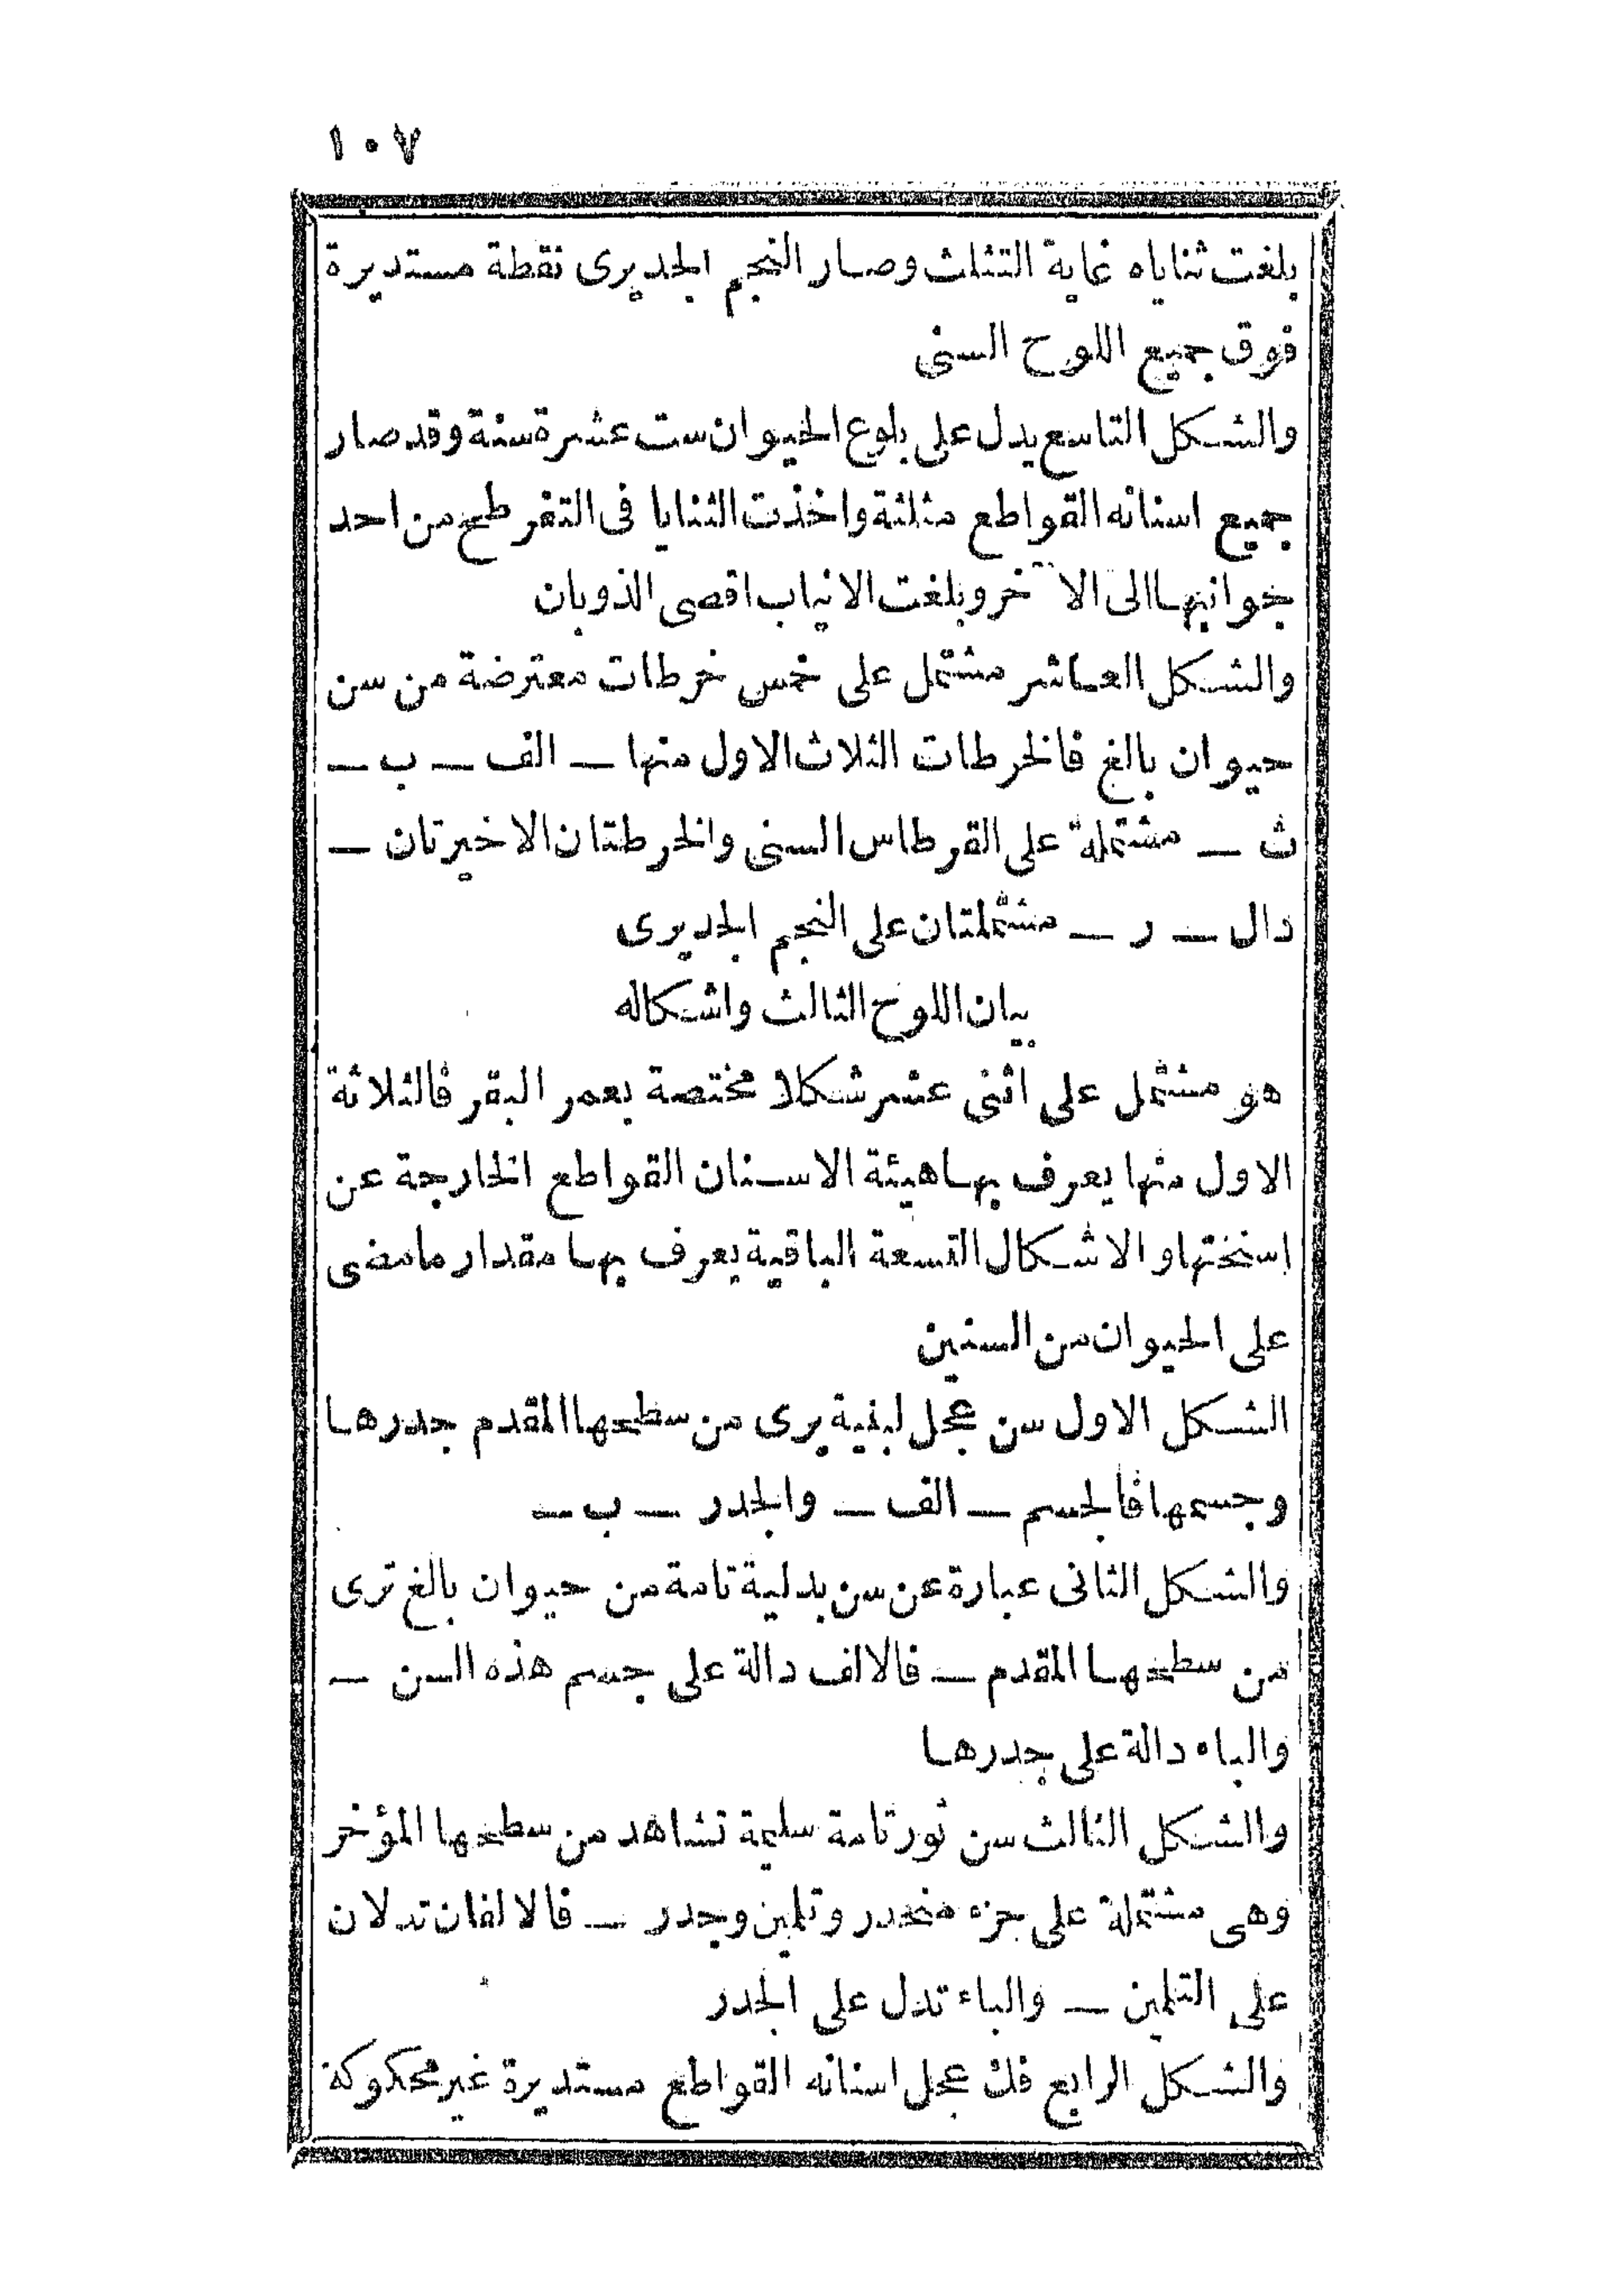 ١٠٧
بلغت ثناياه غاية التثلث وصار النجم الجديرى نقطة مستديرة
فوق جميع اللوح السنى
والشكل التاسع يدل على بلوغ الحيوان ست عشرة سنة وقد صار
جميع اسنانه القواطع مثلثة واخذت الثنايا فى التفرطح من احد
جوانبها الى الآخر وبلغت الانياب اقصى الذوبان
والشكل العاشر مشتمل على خمس خرطات معترضة من سن
حيوان بالغ فالخرطات الثلاث الاول منها — الف — ب —
ث — مشتملة على القرطاس السنى والخرطتان الاخيرتان —
دال — ر — مشتملتان على النجم الجديرى
بيان اللوح الثالث واشكاله
هو مشتمل على اثنى عشر شكلا مختصة بعمر البقر فالثلاثة
الاول منها يعرف بها هيئة الاسنان القواطع الخارجة عن
اسنختها والاشكال التسعة الباقية يعرف بها مقدار ما مضى
على الحيوان من السنين
الشكل الاول سن عجل لبنية يرى من سطحها المقدم جدرها
وجسمها فالجسم — الف — والجدر — ب —
والشكل الثانى عبارة عن سن بدلية تامة من حيوان بالغ ترى
من سطحها المقدم — فالالف دالة على جسم هذه السن —
والباء دالة على جدرها
والشكل الثالث سن ثور تامة سليمة تشاهد من سطحها المؤخر
وهى مشتملة على جزء منحدر وتلمين وجدر — فالالفان تدلان
على التلمين — والباء تدل على الجدر
والشكل الرابع فك عجل اسنانه القواطع مستديرة غير محكوكة